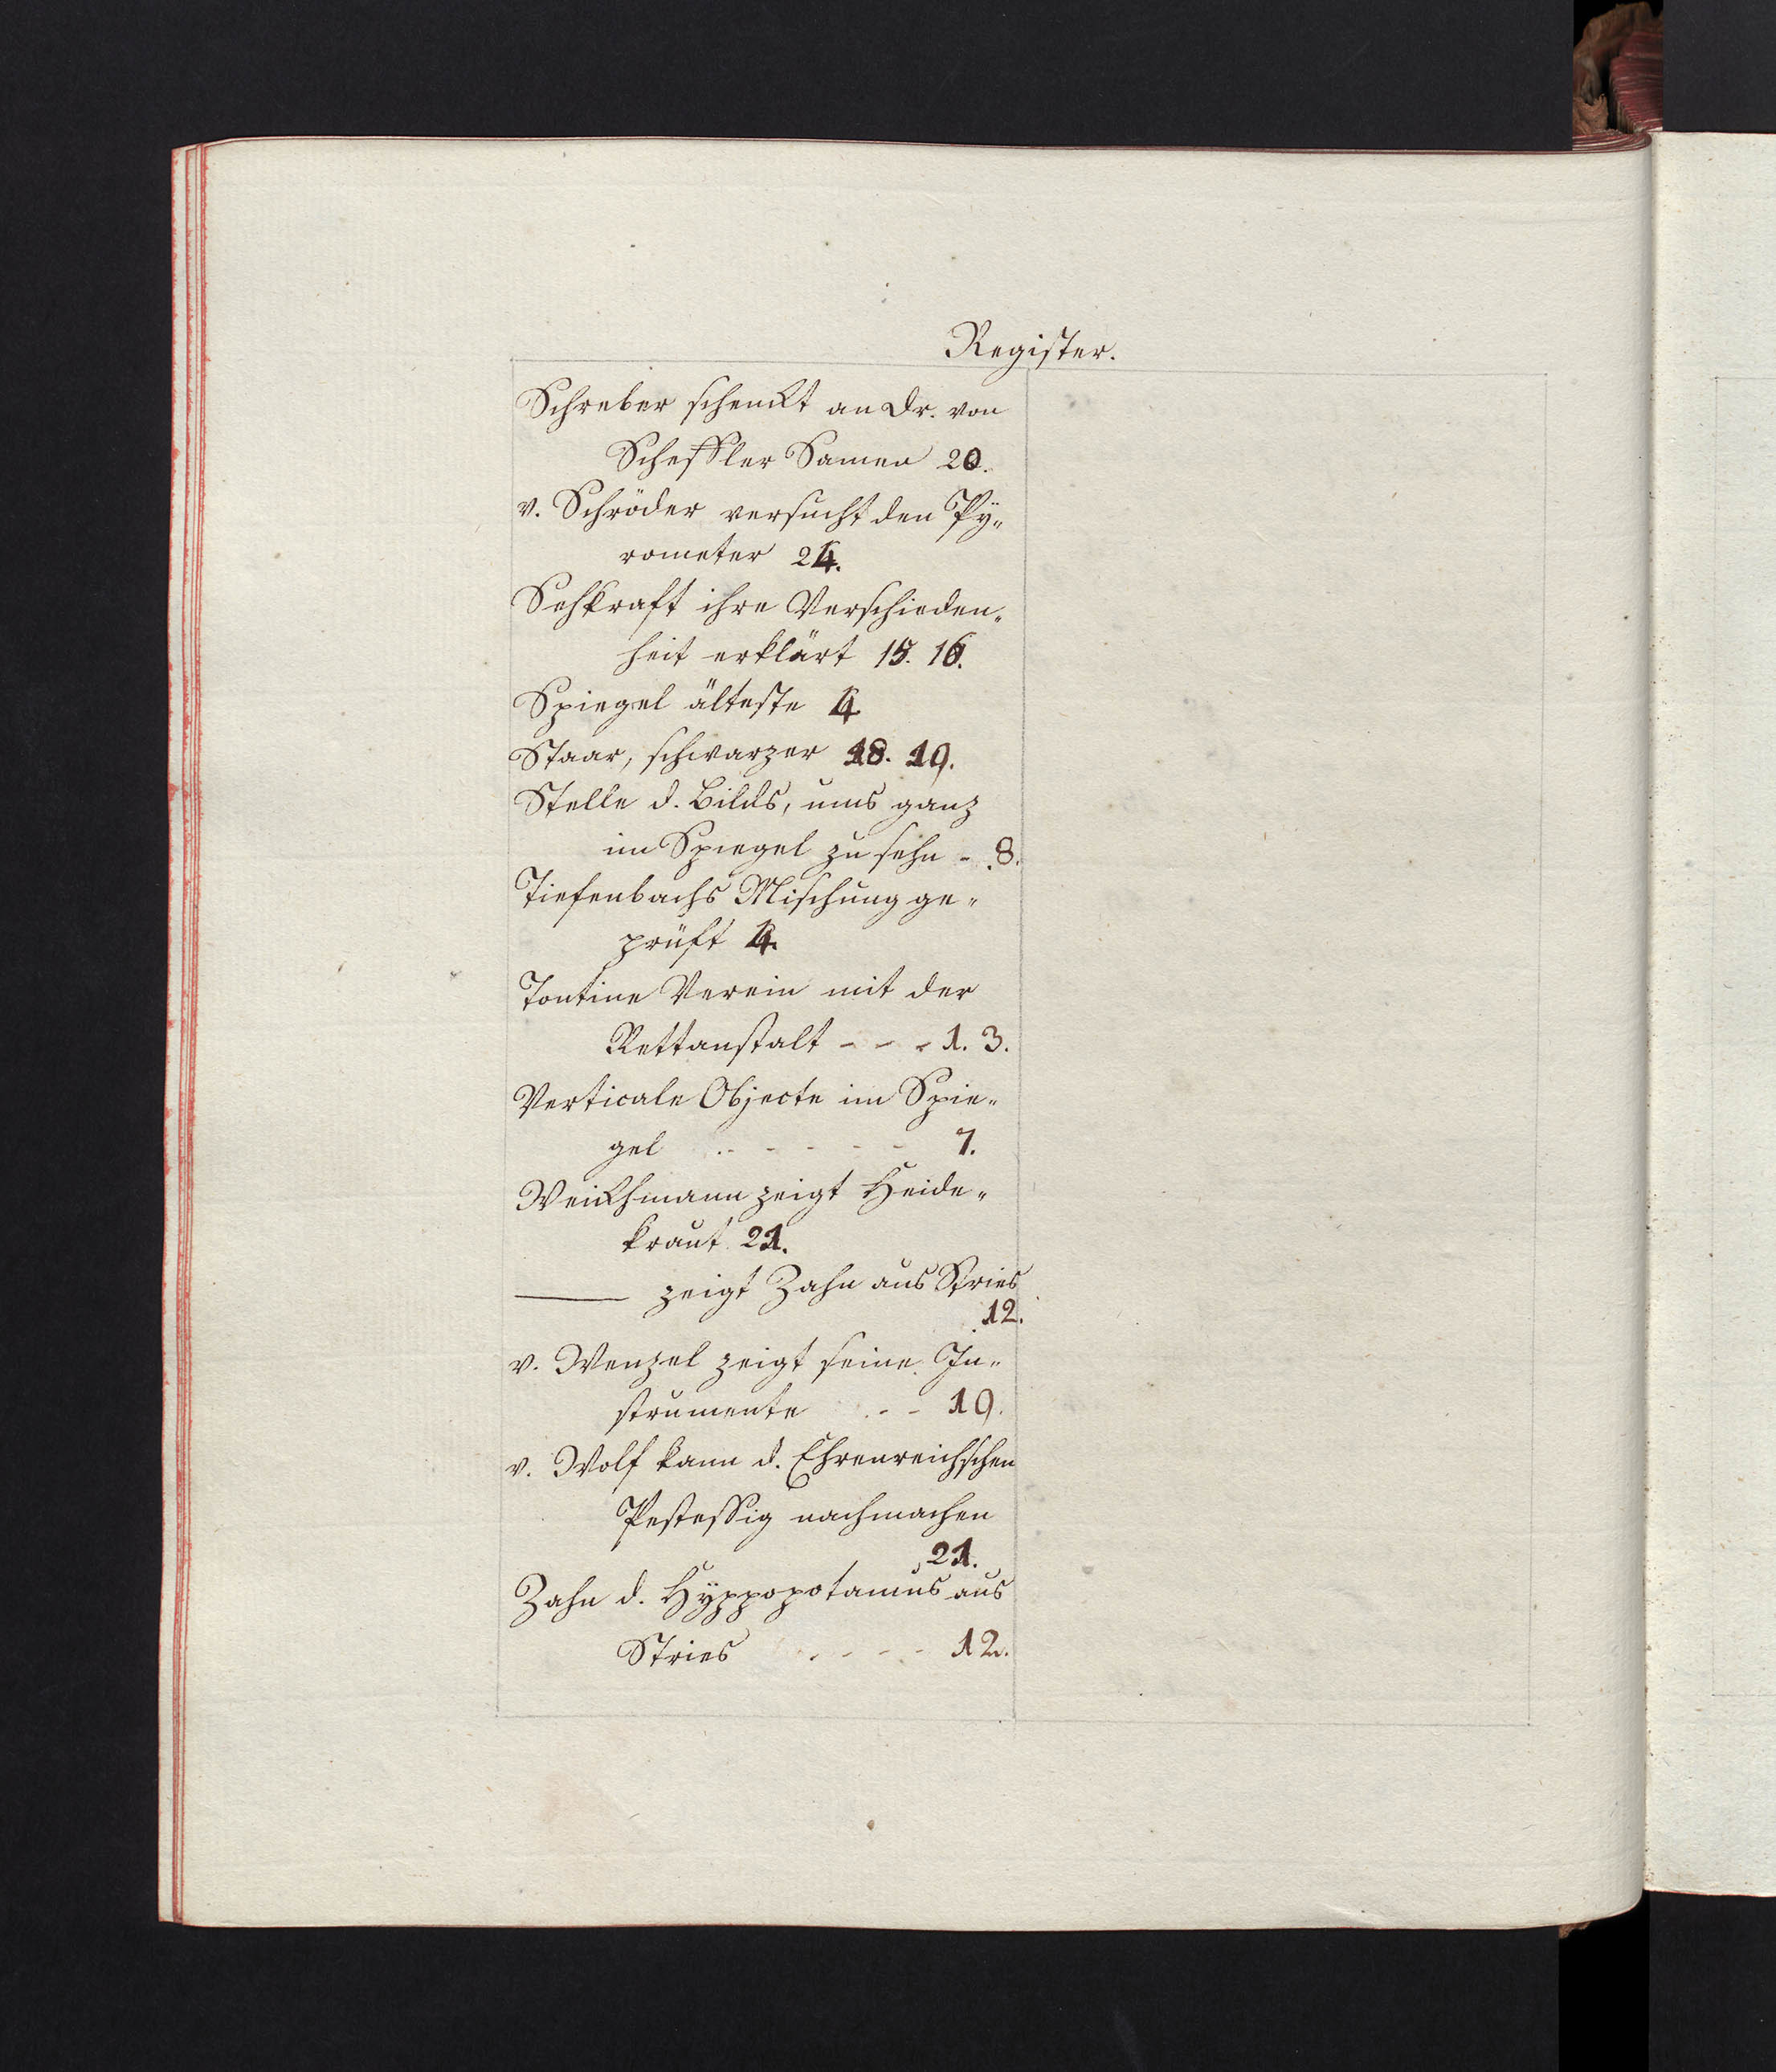 Register.
Schreber schenkt an Dr. von
Scheffler Samen 20.
v. Schröder versucht den Py„
rometer 24.
Sehkraft ihre Verschieden„
heit erklärt 15. 16.
Spiegel älteste 4
Staar, schwarzer 18. 19.
Stelle d. Bilds, ums ganz
im Spiegel zu sehn - 8.
Tiefenbachs Mischung ge„
prüft 4.
Tontine Verein mit der
Rettanstalt - - - 1. 3.
Verticale Objecte im Spie„
gel - - - - - - 7.
Weickhmann zeigt Heide„
kraut 21.
——— zeigt Zahn aus Stries
12.
v. Wenzel zeigt seine In„
strumente - - - 19.
v. Wolf kann d. Ehrenreichschen
Pestessig nachmachen
21.
Zahn d. Hÿppopotamus aus
Stries - - - - 12.